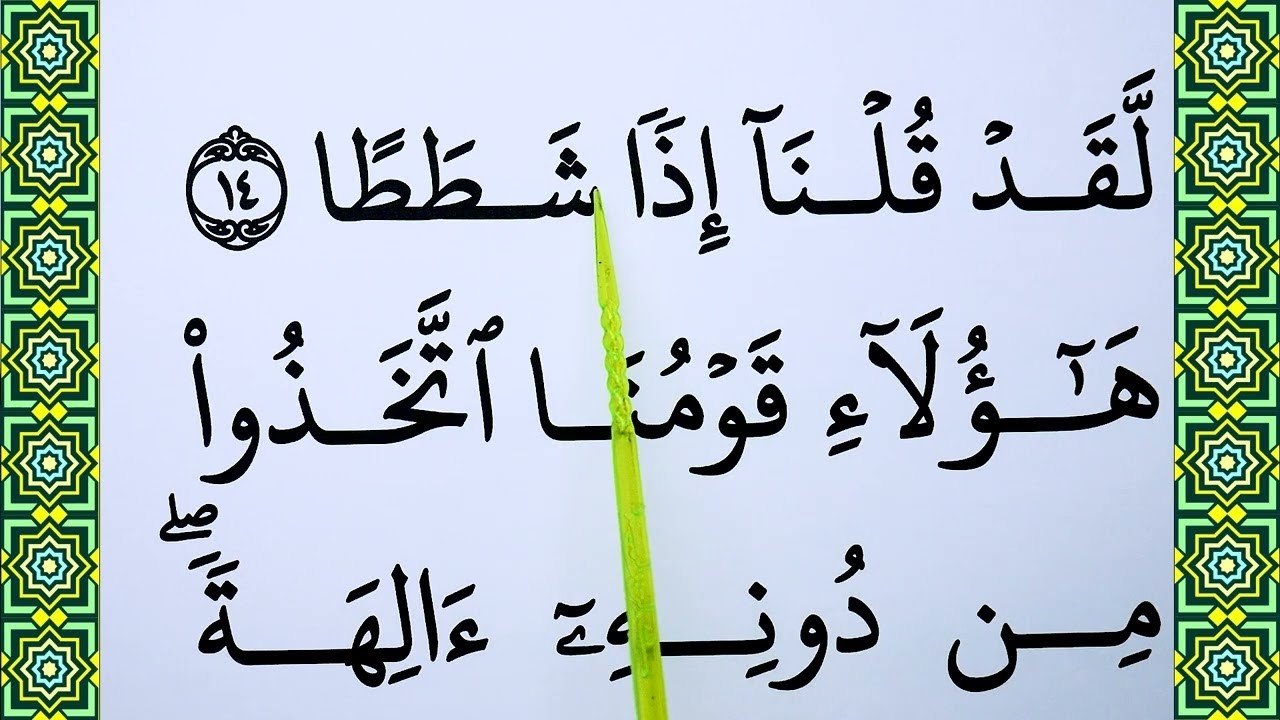 لَّقَدۡ قُلۡنَآ إِذَا شَطَطًا ١٤
هَٰٓؤُلَآءِ قَوۡمُنَا ٱتَّخَذُواْ
مِن دُونِهِۦٓ ءَالِهَةٗۖ